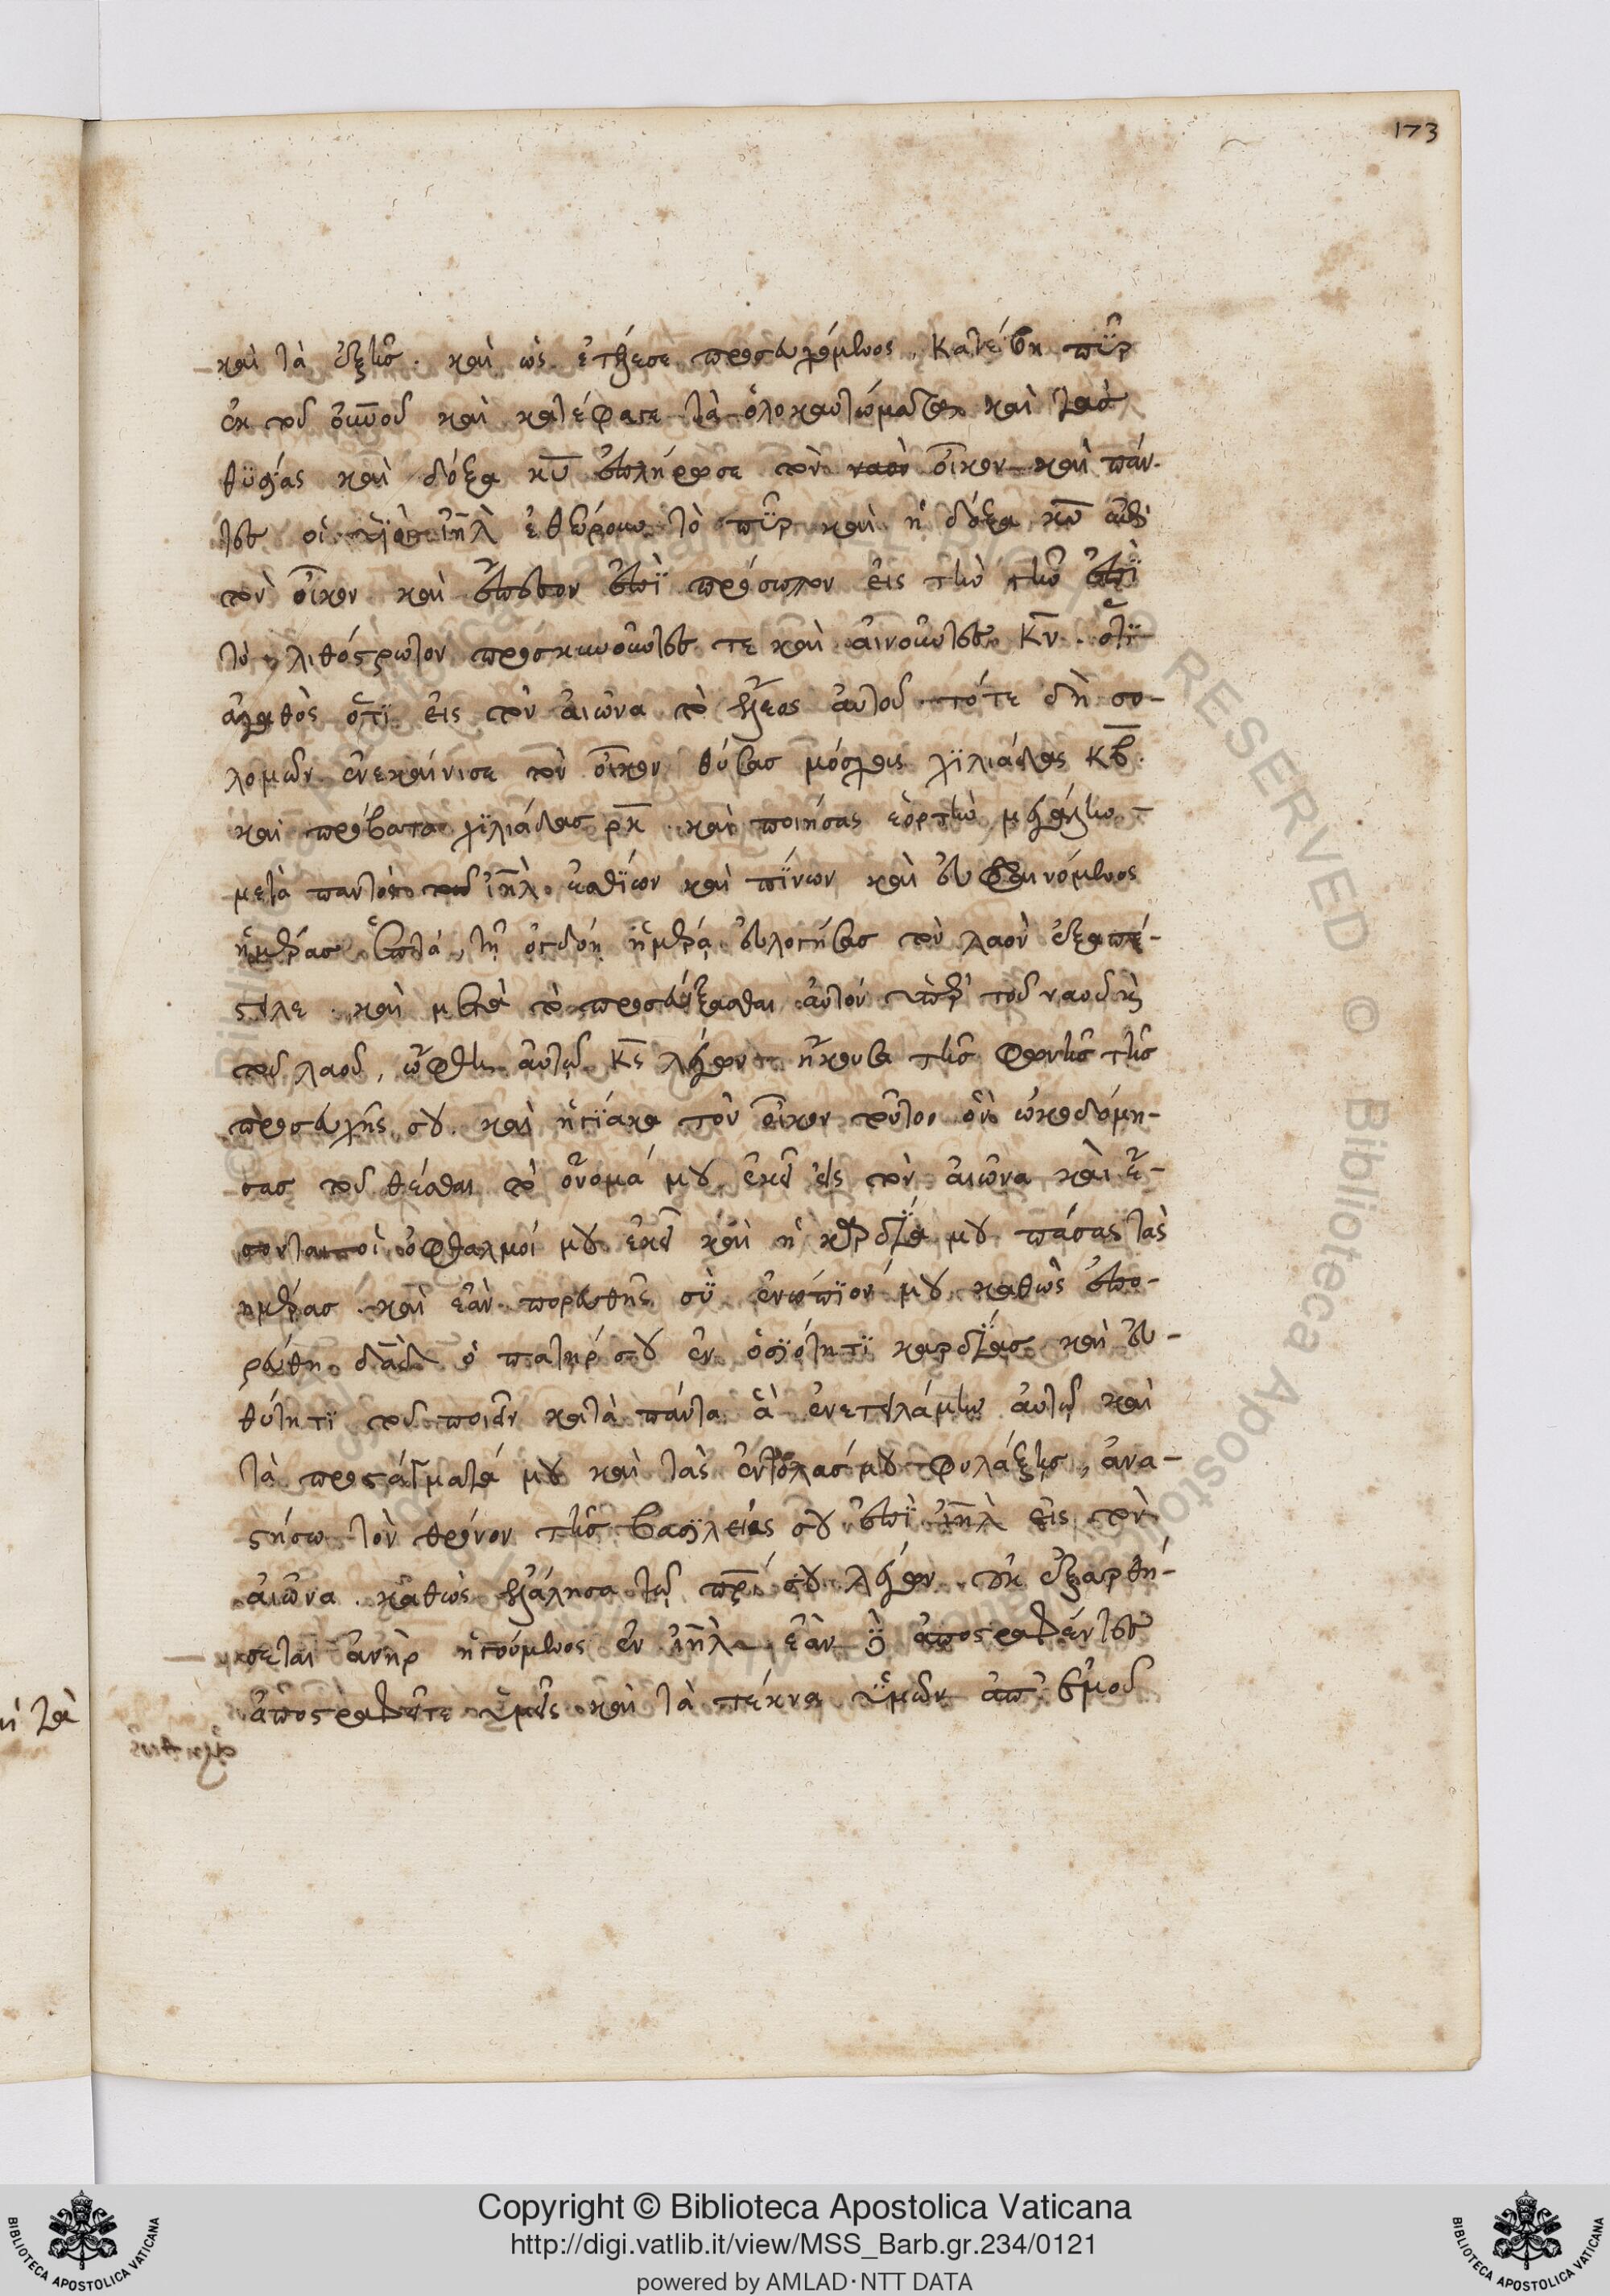 173
καὶ τὰ ἑξῆς. καὶ ὡς ἐτέλεσε προσευχόμενος, κατέβη πῦρ
ἐκ τοῦ οὐνοῦ καὶ κατέφαγε τὰ ὁλοκαυτώματα καὶ τὰς
θυσίας καὶ δόξα κυ ἐπλήρωσε τὸν ναὸν οἶκον καὶ πάν-
τες οἱ υἱοὶ ιηλ ἐθεώρουν τὸ πῦρ καὶ ἡ δόξα κυ ἐπὶ
τὸν οἶκον καὶ ἔπεσον ἐπὶ πρόσωπον εἰς τὴν γῆν ἐπὶ
τὸ λιθόστρωτον προσκυνοῦντες τε καὶ αἰνοῦντες κν. ὅτι
ἀγαθὸς ὅτι εἰς τὸν αἰῶνα τὸ ἔλεος αὐτοῦ. τότε δὴ σο-
λομῶν ἐνεκαίνισε τὸν οἶκον θύσας μόσχους χιλιάδας κβ.
καὶ πρόβατα χιλιάδας ρκ. καὶ ποιήσας ἑορτὴν μεγάλην
μετὰ παντὸς τοῦ ιηλ ἐσθίων καὶ πίνων καὶ εὐφραινόμενος
ἡμέρας ἑπτά, τῇ ὀγδόῃ ἡμέρᾳ εὐλογήσας τὸν λαὸν ἐξαπέ-
στειλε. καὶ μετὰ τὸ προσεύξασθαι αὐτὸν ὑπὲρ τοῦ ναοῦ κ
τοῦ λαοῦ, ὤφθη αὐτῷ κς λέγων ἤκουσα τῆς φωνῆς τῆς
προσευχῆς σου καὶ ἡγίακα τὸν οἶκον τοῦτον ὃν ὠκοδόμη-
σας τοῦ θέσθαι τὸ ὄνομά μου ἐκεῖ εἰς τὸν αἰῶνα καὶ ἔ-
σονται οἱ ὀφθαλμοί μου ἐκεῖ καὶ ἡ καρδία μου πάσας τὰς
ἡμέρας. καὶ ἐὰν πορευθῇς σὺ ἐνώπιόν μου καθὼς ἐπο-
ρεύθη δαδ ὁ πατήρ σου ἐν ὁσιότητι καρδίας καὶ εὐ-
θύτητι τοῦ ποιεῖν κατὰ πάντα ἃ ἐνετειλάμην αὐτῷ καὶ
τὰ προστάγματά μου καὶ τὰς ἐντολάς μου φυλάξῃς, ἀνα-
στήσω τὸν θρόνον τῆς βασιλείας σου ἐπὶ ιηλ εἰς τὸν
αἰῶνα. καθὼς ἐλάλησα τῷ πρι σου λέγων. οὐκ ἐξαρθή-
σεται ἀνὴρ ἡγούμενος ἐν ιηλ. ἐὰν δὲ ἀποστραφέντες
ἀποστραφῆτε ὑμεῖς καὶ τὰ τέκνα ὑμῶν ἀπ' ἐμοῦ
Copyright © Biblioteca Apostolica Vaticana
http://digi.vatlib.it/view/MSS_Barb.gr.234/0121
powered by AMLAD·NTT DATA
BIBLIOTECA APOSTOLICA VATICANA
BIBLIOTECA APOSTOLICA VATICANA